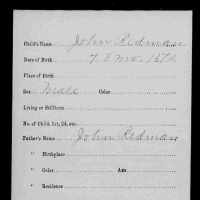 Child's Name John Redman
Date of Birth 7.8 mo. 1872
Place of Birth
Sex Male Color
Living or Stillborn
No. of Child, 1st, 2d, etc.
Father's Name John Redman
" Birthplace
" Color Age
" Residence